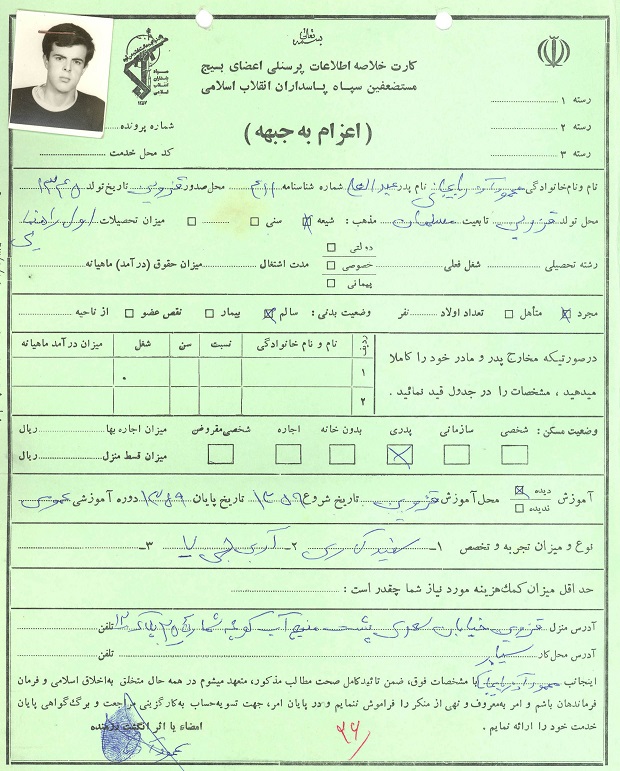 بسمه تعالی
کارت خلاصه اطلاعات پرسنلی اعضای بسیج
مستضعفین سپاه پاسداران انقلاب اسلامی
( اعزام به جبهه )
سپاه پاسداران انقلاب اسلامی
۱۳۵۷
شماره پرونده
کد محل خدمت
رسته ۱
رسته ۲
رسته ۳
نام و نام خانوادگی محمود نام پدر شماره شناسنامه محل صدور قزوین تاریخ تولد ۱۳۴۵
محل تولد قزوین تابعیت مسلمان مذهب : شیعه سنی میزان تحصیلات اول راهنمایی
رشته تحصیلی شغل فعلی دولتی خصوصی پیمانی مدت اشتغال میزان حقوق (درآمد) ماهیانه
مجرد متأهل تعداد اولاد نفر وضعیت بدنی : سالم بیمار نقص عضو از ناحیه
درصورتیکه مخارج پدر و مادر خود را کاملا
میدهید ، مشخصات را در جدول قید نمائید .
ردیف نام و نام خانوادگی نسبت سن شغل میزان درآمد ماهیانه
۱
۲
وضعیت مسکن : شخصی سازمانی پدری بدون خانه اجاره شخصی مقروض میزان اجاره بها ریال
میزان قسط منزل ریال
آموزش دیده ندیده محل آموزش قزوین تاریخ شروع ۱۳۵۹ تاریخ پایان ۱۳۵۹ دوره آموزشی عمومی
نوع و میزان تجربه و تخصص ۱- ۲- آرپی جی ۳-
حد اقل میزان کمک هزینه مورد نیاز شما چقدر است :
آدرس منزل قزوین خیابان سعدی پشت آب کوچه پلاک ۱۲ تلفن
آدرس محل کار تلفن
اینجانب با مشخصات فوق، ضمن تائید کامل صحت مطالب مذکور، متعهد میشوم در همه حال متخلق به اخلاق اسلامی و فرمان
فرماندهان باشم و امر به معروف و نهی از منکر را فراموش ننمایم و در پایان امر، جهت تسویه حساب به کارگزینی مراجعت و برگ گواهی پایان
خدمت خود را ارائه نمایم .
امضاء یا اثر انگشت دهنده
۲۶